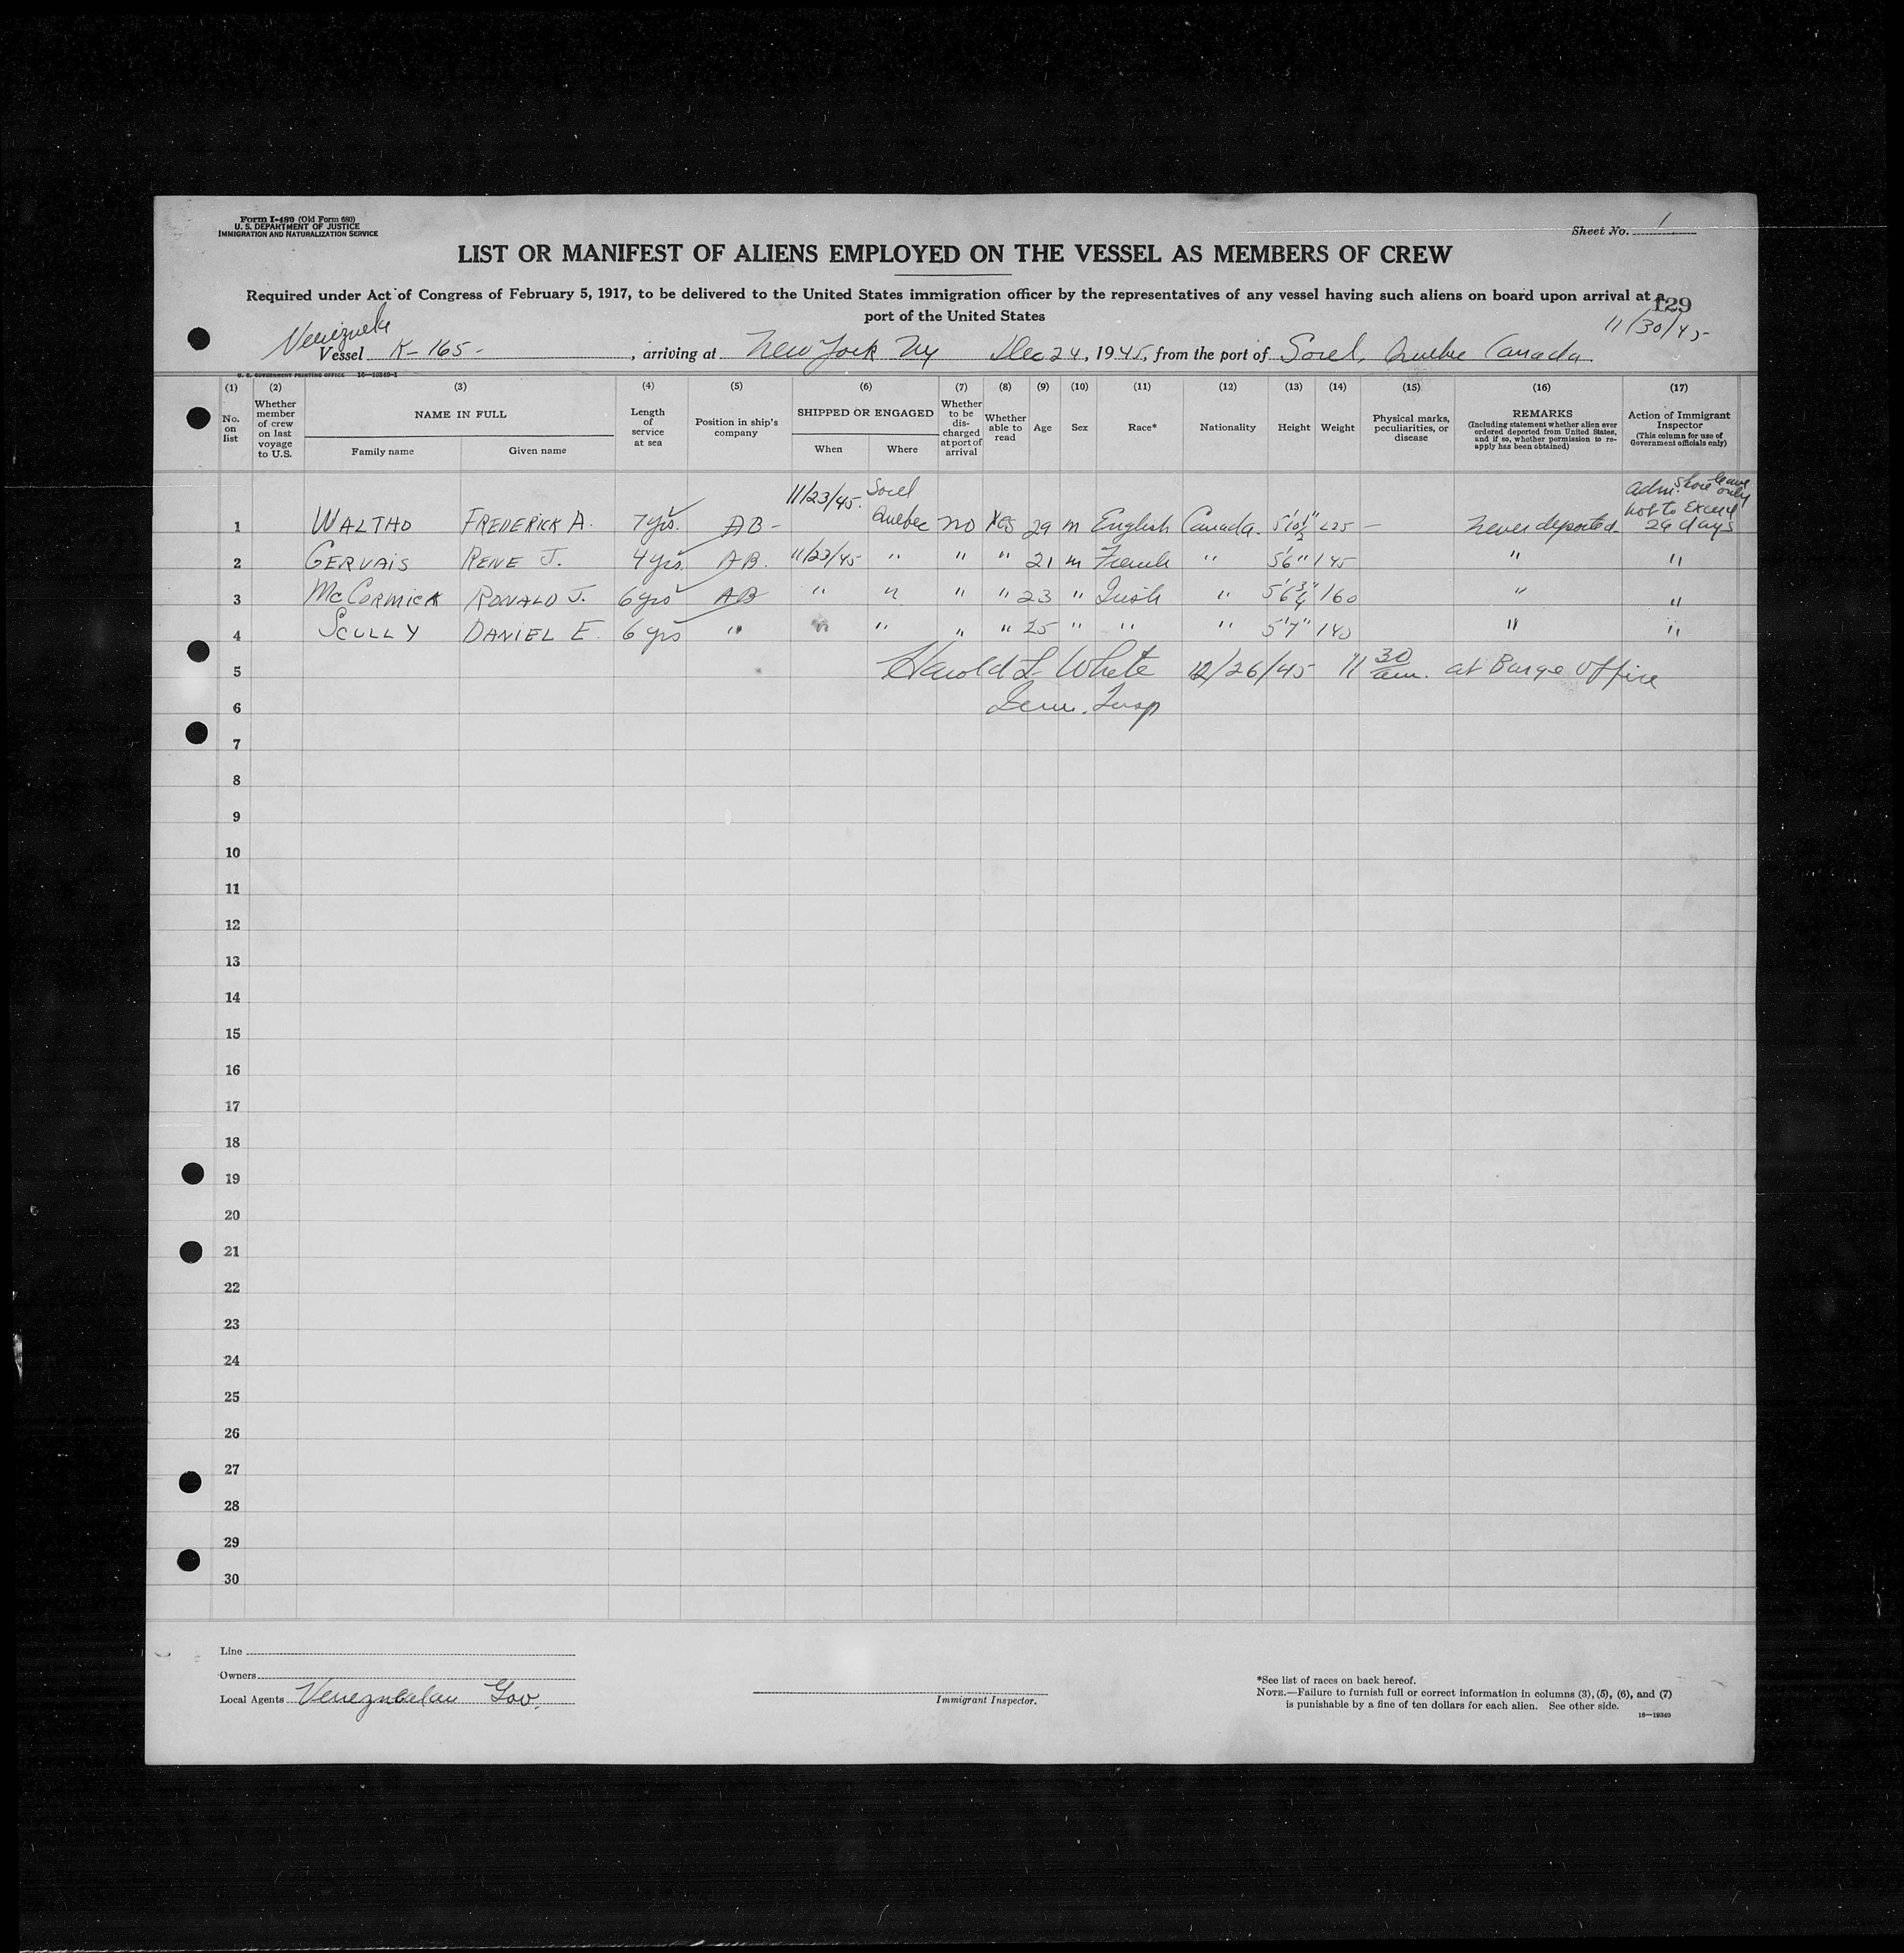 Form I-489 (Old Form 680)
U. S. DEPARTMENT OF JUSTICE
IMMIGRATION AND NATURALIZATION SERVICE
Sheet No. 1
LIST OR MANIFEST OF ALIENS EMPLOYED ON THE VESSEL AS MEMBERS OF CREW
Required under Act of Congress of February 5, 1917, to be delivered to the United States immigration officer by the representatives of any vessel having such aliens on board upon arrival at a
port of the United States
129
11/30/45
Venezuela
Vessel K-165-, arriving at New York NY Dec 24, 1945, from the port of Sorel, Quebec Canada
U. S. GOVERNMENT PRINTING OFFICE 16—19349-1
(1) (2) (3) (4) (5) (6) (7) (8) (9) (10) (11) (12) (13) (14) (15) (16) (17)
No. on list
Whether member of crew on last voyage to U.S.
NAME IN FULL
Family name Given name
Length of service at sea
Position in ship's company
SHIPPED OR ENGAGED
When Where
Whether to be discharged at port of arrival
Whether able to read
Age Sex Race* Nationality Height Weight
Physical marks, peculiarities, or disease
REMARKS
(Including statement whether alien ever ordered deported from United States, and if so, whether permission to re-apply has been obtained)
Action of Immigrant Inspector
(This column for use of Government officials only)
1 WALTHO FREDERICK A. 7 yrs. AB - 11/23/45. Sorel Quebec no Yes 29 m English Canada. 5'10½" 225 — never deported. Adm. Shore leave only not to Exceed 29 days
2 GERVAIS RENE J. 4 yrs. AB. 11/23/45 " " " 21 m French " 5'6" 145 " "
3 McCORMICK RONALD J. 6 yrs AB " " " " 23 " Irish " 5'6¾" 160 " "
4 SCULLY DANIEL E. 6 yrs " " " " " 25 " " " 5'7" 140 " "
5 Harold L. White 12/26/45 11 30 am. at Barge Office
6 Imm. Insp
7
8
9
10
11
12
13
14
15
16
17
18
19
20
21
22
23
24
25
26
27
28
29
30
Line
Owners
Local Agents Venezuelan Gov.
Immigrant Inspector.
*See list of races on back hereof.
NOTE.—Failure to furnish full or correct information in columns (3), (5), (6), and (7)
is punishable by a fine of ten dollars for each alien. See other side.
16—19349